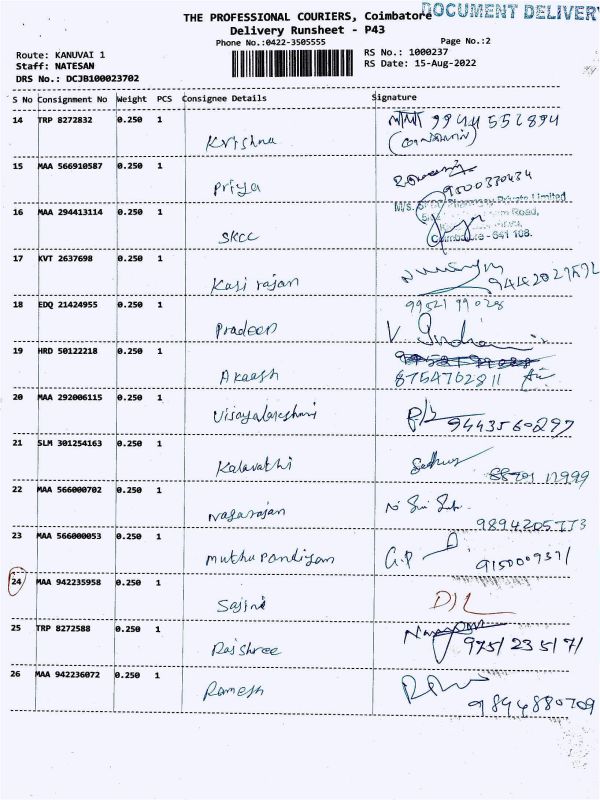 THE PROFESSIONAL COURIERS, Coimbatore
DOCUMENT DELIVERY
Delivery Runsheet - P43
Phone No.:0422-3505555
Page No.:2
Route: KANUVAI 1
RS No.: 1000237
Staff: NATESAN
RS Date: 15-Aug-2022
DRS No.: DCJB100023702
S No Consignment No Weight PCS Consignee Details Signature
14 TRP 8272832 0.250 1
Krishna
15 MAA 566910587 0.250 1
Priya
9500330434
16 MAA 294413114 0.250 1
M/s. Private Limited
Road,
SKCC
Coimbatore - 641 108.
17 KVT 2637698 0.250 1
Kasi rajan
18 EDQ 21424955 0.250 1
99521 99028
Pradeep
19 HRD 50122218 0.250 1
Akaash
8754702811
20 MAA 292006115 0.250 1
Vijayalakshmi
9443560297
21 SLM 301254163 0.250 1
Kalavathi
22 MAA 566000702 0.250 1
Nagarajan
23 MAA 566000053 0.250 1
Muthu Pandiyan
G.P
24 MAA 942235958 0.250 1
Sajini
D/L
25 TRP 8272588 0.250 1
Rajshree
975/ 23 5/ 7/
26 MAA 942236072 0.250 1
Ramesh
9894880709